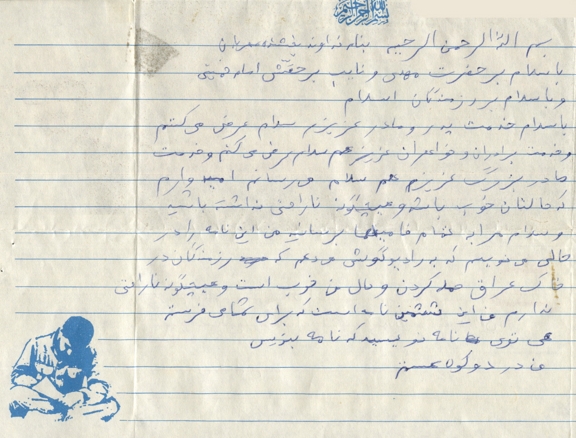 بسم الله الرحمن الرحیم
بسم الله الرحمن الرحیم بنام خداوند بخشنده مهربان
با سلام بر حضرت مهدی و نایب بر حقش امام خمینی
و با سلام بر رزمندگان اسلام
با سلام خدمت پدر و مادر عزیزم سلام عرض می کنم
و خدمت برادران و خواهران عزیز هم سلام عرض می کنم و خدمت
مادر بزرگ عزیزم هم سلام می رسانم امید وارم
که حالتان خوب باشد و هیچگونه ناراحتی نداشته باشید
و سلام مرا به تمام فامیلها برسانید من این نامه را در
حالی می نویسم که به رادیو گوش می دهم که رزمندگان در
خاک عراق حمله کردن و حال من خوب است و هیچگونه ناراحتی
ندارم من این ششمین نامه است که برای شما می فرستم
هی توی نامه نویسید که نامه بنویس
من در دو کوهه هستم